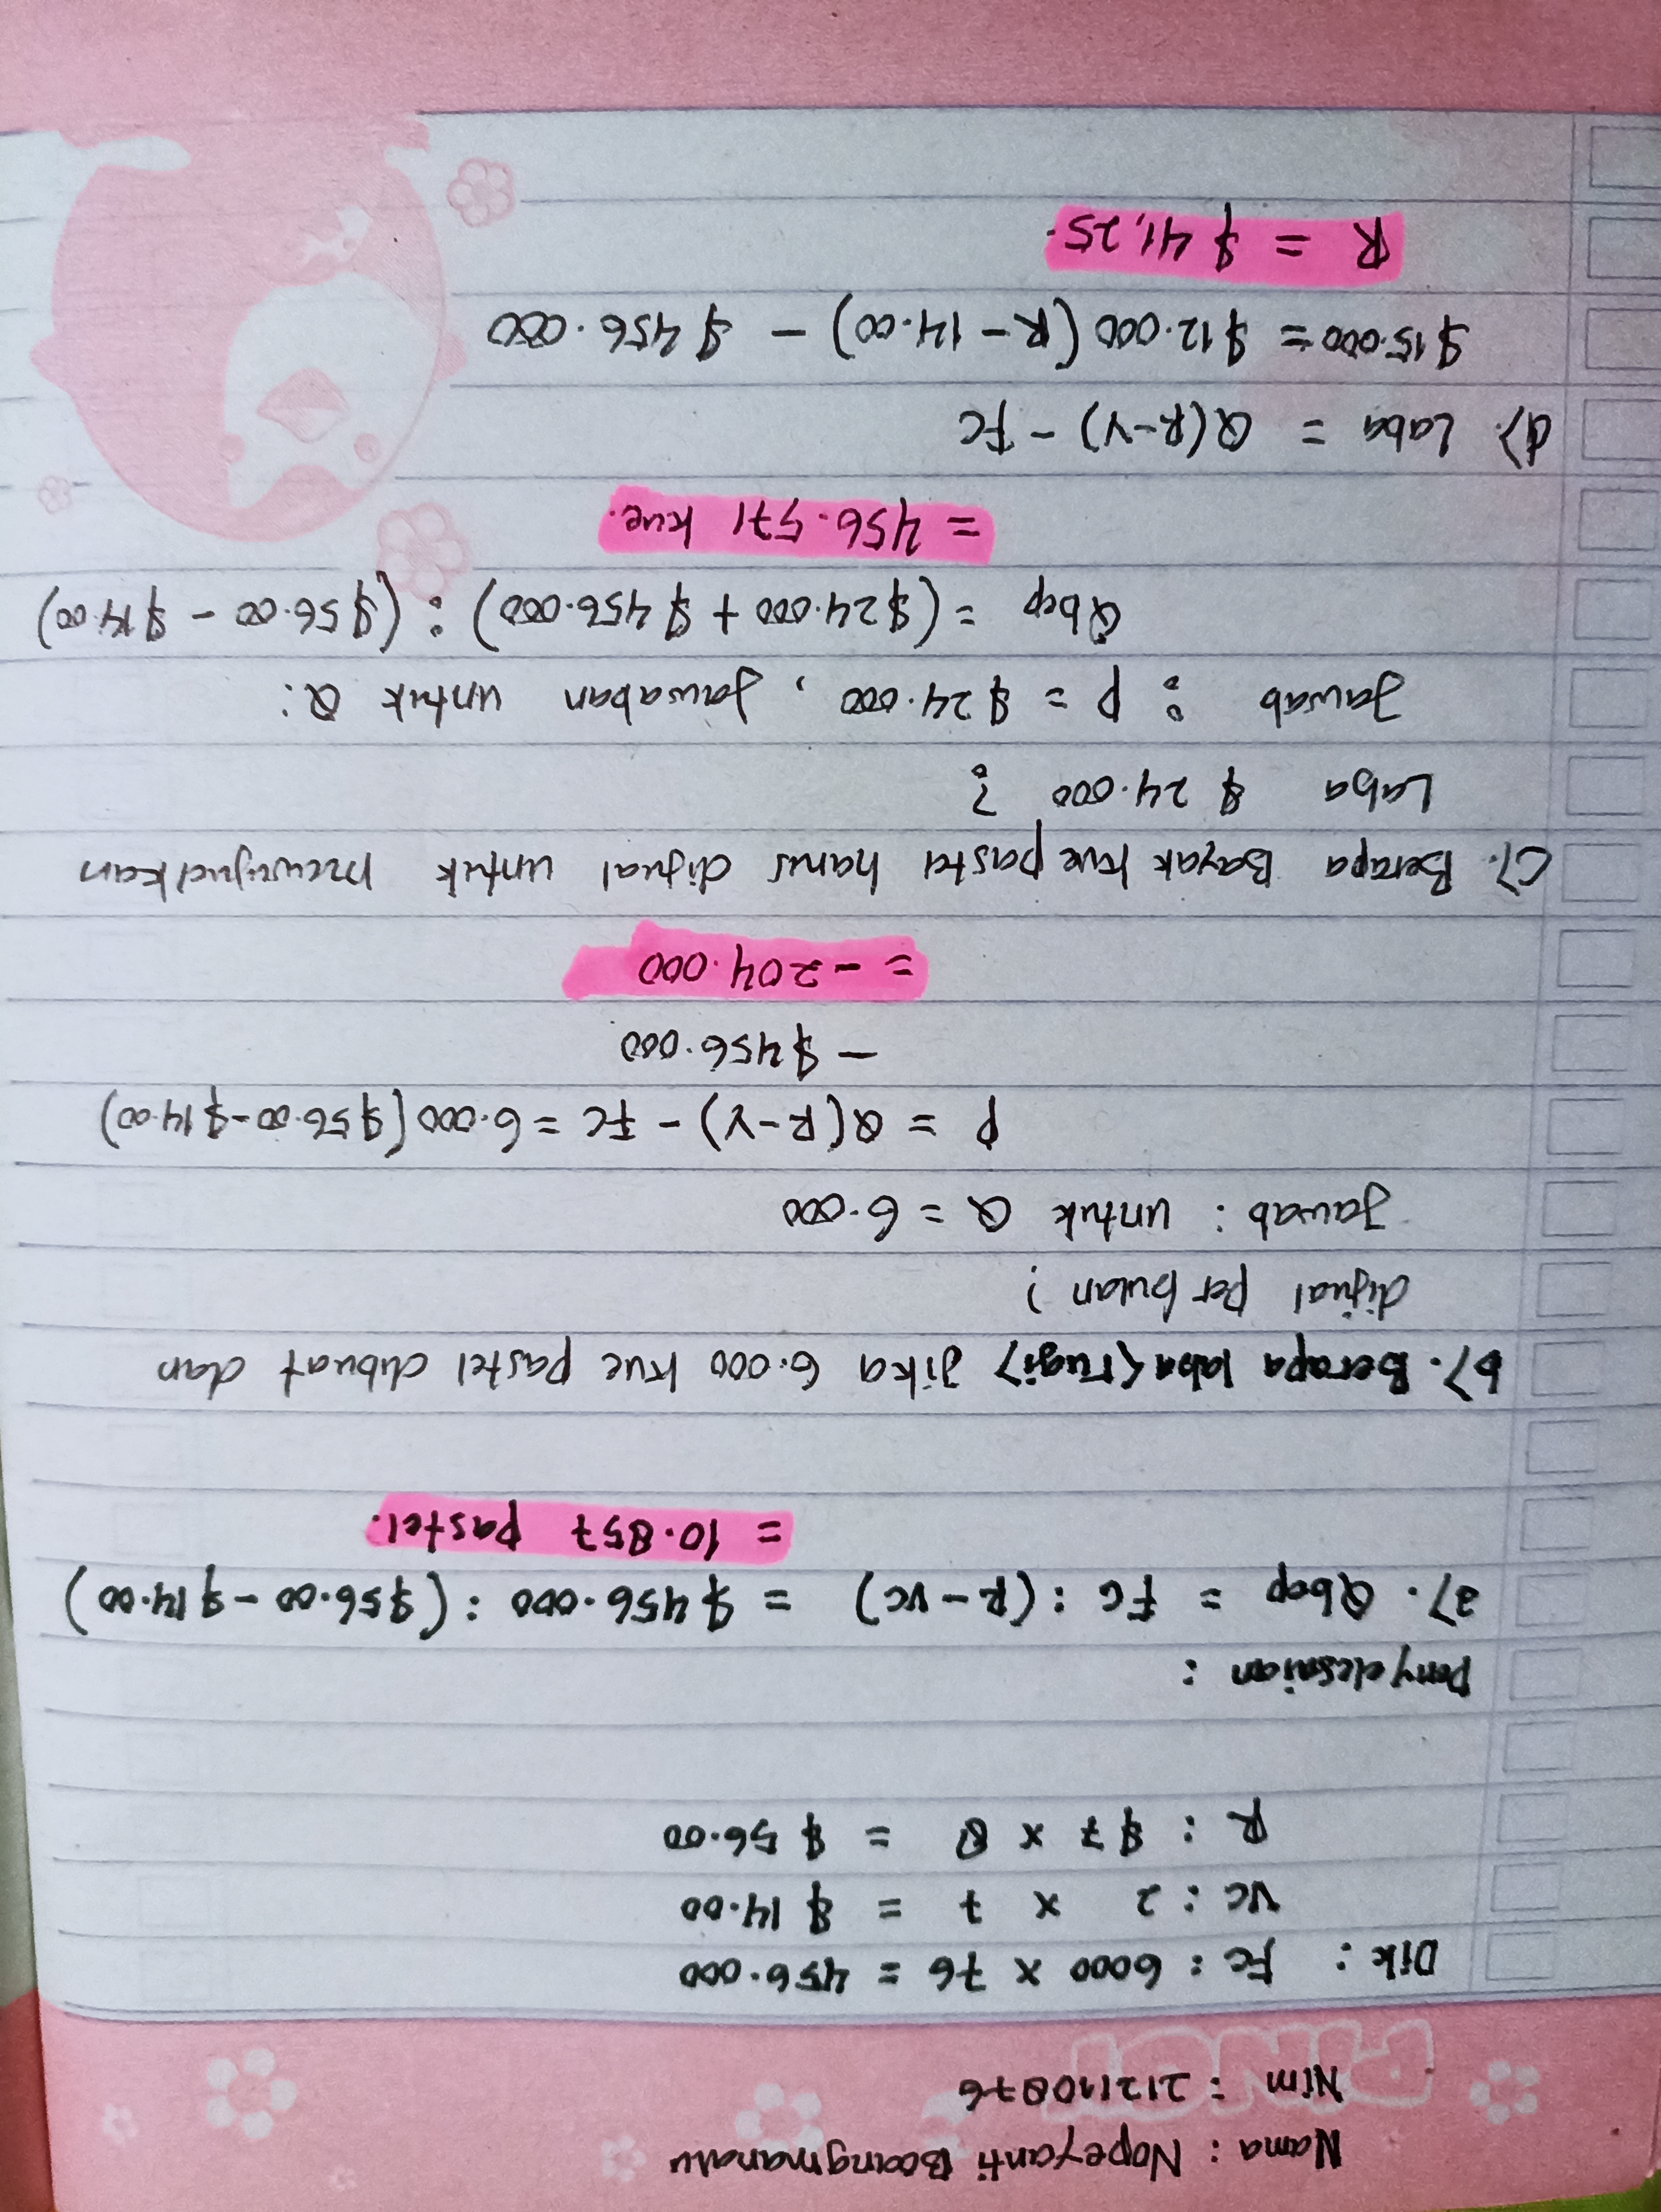 Nama : Nopeyanti Boangmanalu
PiNGY
Nim : 212110876
Dik : FC : 6000 x 76 = 456.000
VC : 2 x 7 = $ 14.00
R : $7 x 8 = $ 56.00
Penyelesaian :
a). Qbep = FC : (R - VC) = $456.000 : ($56.00 - $14.00)
= 10.857 pastel.
b). Berapa laba (rugi) Jika 6.000 kue pastel dibuat dan
dijual per bulan ?
Jawab : untuk Q = 6.000
P = Q(R-V) - FC = 6.000 ($56.00-$14.00)
- $456.000
= -204.000
c). Berapa Bayak kue pastel harus dijual untuk mewujudkan
Laba $ 24.000 ?
Jawab : P = $24.000, Jawaban untuk Q :
Qbep = ($24.000 + $456.000) : ($56.00 - $14.00)
= 456.571 kue.
d). Laba = Q(R-V) - FC
$15.000 = $12.000 (R - 14.00) - $456.000
R = $41,25.